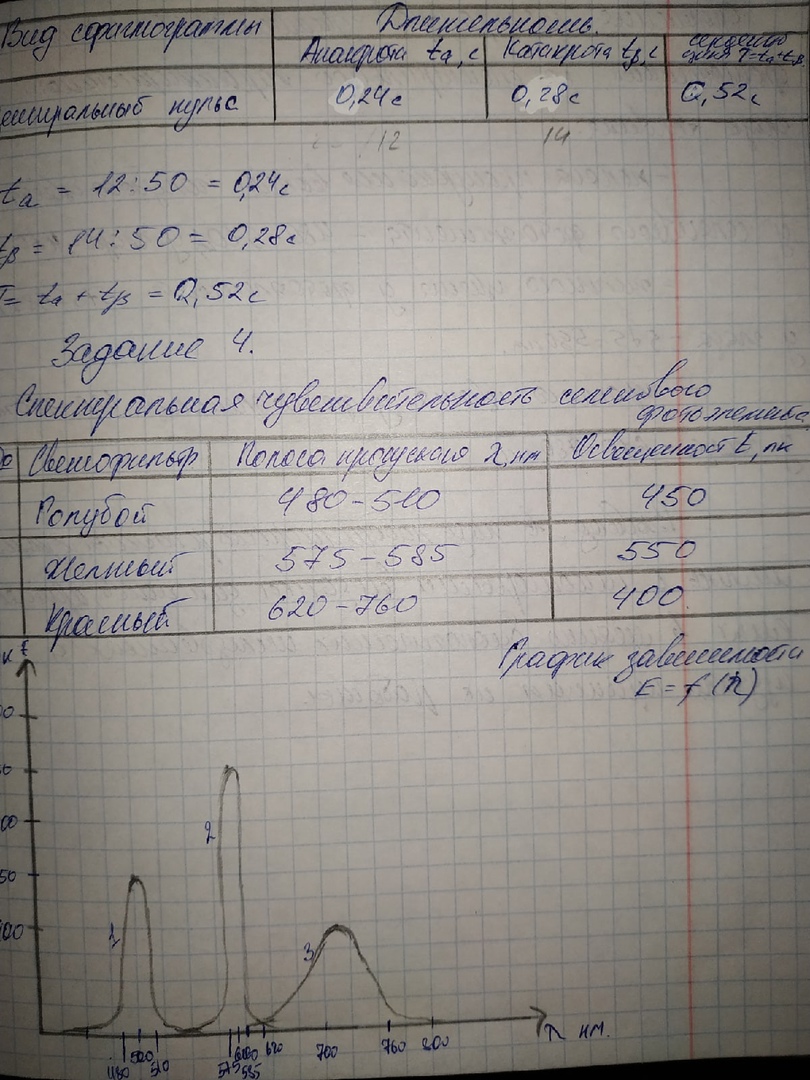 Вид сфигмограммы
Длительность.
Анакрота tа, с
Катакрота tβ, с
T=tа+tβ
0,24с
0,28с
0,52с
пульс
12
14
tа = 12:50 = 0,24с
tβ = 14:50 = 0,28с
T= tа + tβ = 0,52с
Задание 4.
Спектральная чувствительность селенового
фотоэлемента
Светофильтр
Полоса пропускания λ, нм
Освещенность E, лк
Голубой
480-510
450
Желтый
575-585
550
Красный
620-760
400
График зависимости
E = f (λ)
1
2
3
480
500
510
575
600
585
620
700
760
800
нм.